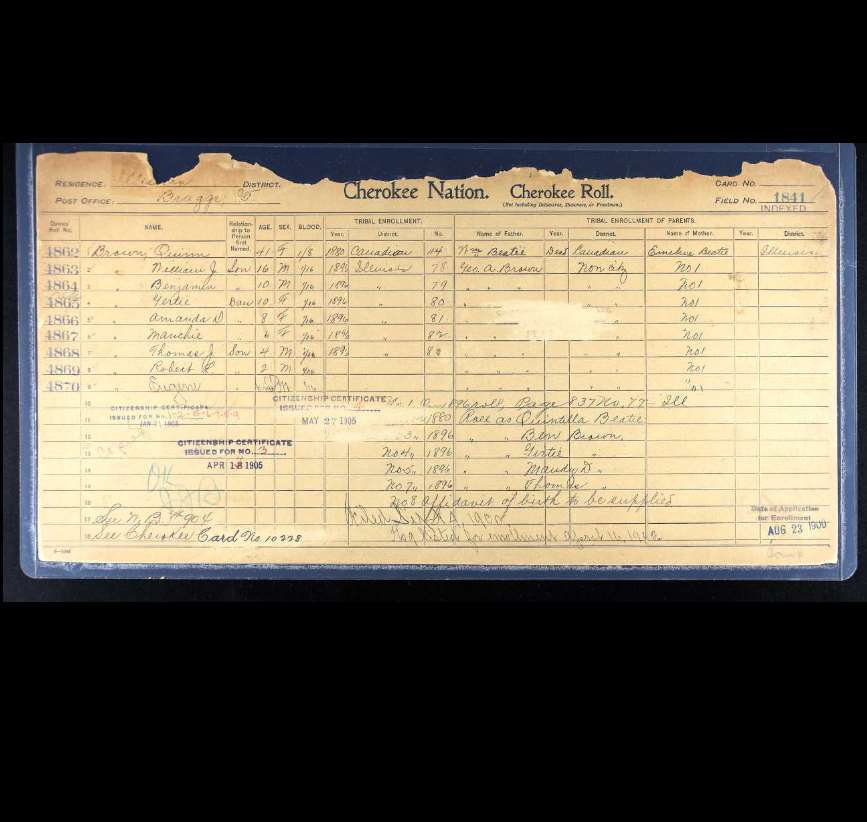 RESIDENCE: DISTRICT. Cherokee Nation. Cherokee Roll. CARD NO.
POST OFFICE: Braggs, (Not Including Delawares, Shawnees, or Freedmen.) FIELD NO. 1841
INDEXED
Dawes' Roll No. NAME. Relation-ship to Person first Named. AGE. SEX. BLOOD. TRIBAL ENROLLMENT. TRIBAL ENROLLMENT OF PARENTS.
Year. District. No. Name of Father. Year. District. Name of Mother. Year. District.
4862 1 Brown, Quinn 41 F 1/8 1880 Canadian Wm Beatie Dead Canadian Emeline Beatie Illinois
4863 2 " William J. Son 16 M 1/16 1896 Illinois 78 Geo. A. Brown Non citz No 1
4864 3 " Benjamin " 10 M 1/16 1896 " 79 " " " No 1
4865 4 " Gertie Dau 10 F 1/16 1896 " 80 No 1
4866 5 " Amanda D " 8 F 1/16 1896 " 81 " No 1
4867 6 " " 6 F 1/16 1896 " 82 " No 1
4868 7 " Thomas J. Son 4 M 1/16 1896 " " No 1
4869 8 " Robert " 2 M 1/16 No 1
4870 9 " Eugene M 1/16 " No 1
10 No. 1 on 1896 roll, Page 837 No. 77 Ill
CITIZENSHIP CERTIFICATE ISSUED FOR NO.
JAN 21, 1905
CITIZENSHIP CERTIFICATE ISSUED FOR NO.
MAY 27 1905
1880 Roll as Quintilla Beatie
3 " 1896 " " Ben Brown,
CITIZENSHIP CERTIFICATE
ISSUED FOR NO. 3
APR 18 1905
No 4 " 1896 " " Gertie "
No 5 " 1896 " " Mandy D "
No 7 " 1896 " " Thomas "
OK
No 8 Affidavit of birth to be supplied
Filed Sept 4, 1900
See N. B. # 904
See Cherokee Card No. 10228
No 9 listed for enrollment April 16, 1902
Date of Application
for Enrollment
AUG 23 1900